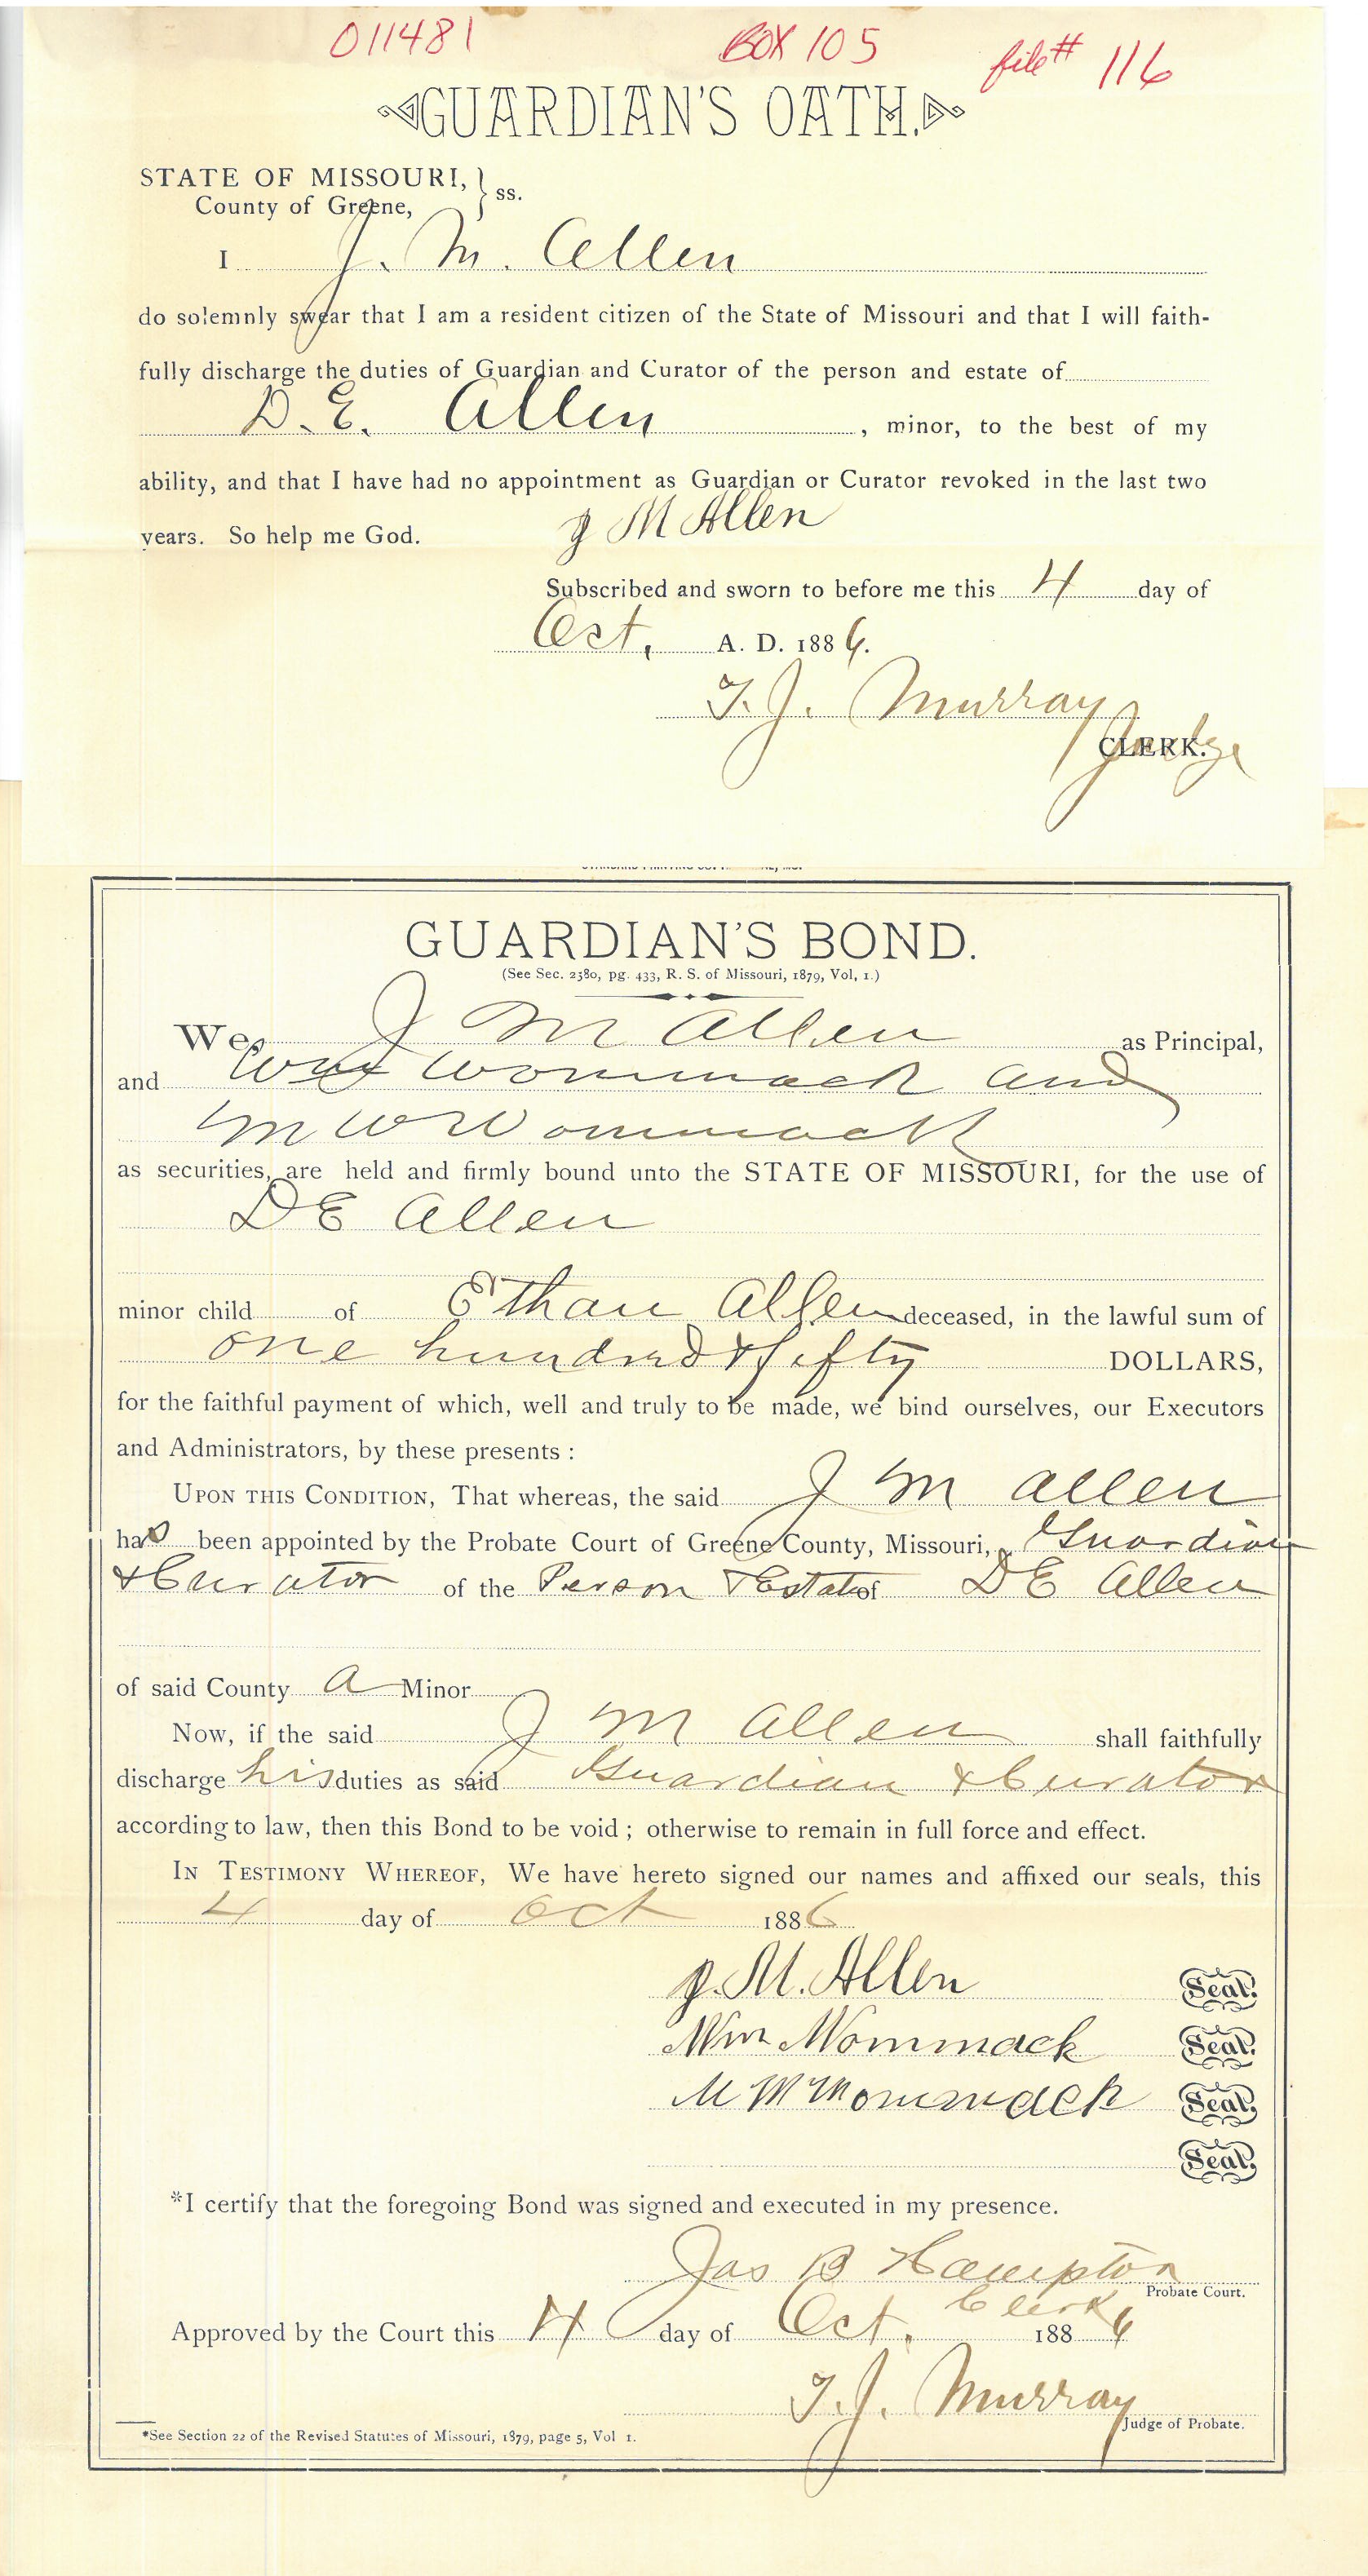 011481 BOX 105 file# 116
GUARDIAN'S OATH.
STATE OF MISSOURI, } ss.
County of Greene,
I J. M. Allen
do solemnly swear that I am a resident citizen of the State of Missouri and that I will faith-
fully discharge the duties of Guardian and Curator of the person and estate of
D. E. Allen, minor, to the best of my
ability, and that I have had no appointment as Guardian or Curator revoked in the last two
years. So help me God. J M Allen
Subscribed and sworn to before me this 4 day of
Oct, A. D. 1886.
T. J. Murray
CLERK. Judge
GUARDIAN'S BOND.
(See Sec. 2580, pg. 433, R. S. of Missouri, 1879, Vol, 1.)
We, J M Allen as Principal,
and Wm Wommack and
M W Wommack
as securities, are held and firmly bound unto the STATE OF MISSOURI, for the use of
D E Allen
minor child of Ethan Allen deceased, in the lawful sum of
one hundred & fifty DOLLARS,
for the faithful payment of which, well and truly to be made, we bind ourselves, our Executors
and Administrators, by these presents :
UPON THIS CONDITION, That whereas, the said J M Allen
has been appointed by the Probate Court of Greene County, Missouri, Guardian
& Curator of the Person & Estate of D E Allen
of said County a Minor
Now, if the said J M Allen shall faithfully
discharge his duties as said Guardian & Curator
according to law, then this Bond to be void ; otherwise to remain in full force and effect.
IN TESTIMONY WHEREOF, We have hereto signed our names and affixed our seals, this
4 day of Oct 1886
J. M. Allen Seal.
Wm Wommack Seal.
M W Wommack Seal.
Seal.
*I certify that the foregoing Bond was signed and executed in my presence.
Jas B Hampton
Clerk Probate Court.
Approved by the Court this 4 day of Oct. 1886
T. J. Murray
Judge of Probate.
*See Section 22 of the Revised Statutes of Missouri, 1879, page 5, Vol 1.